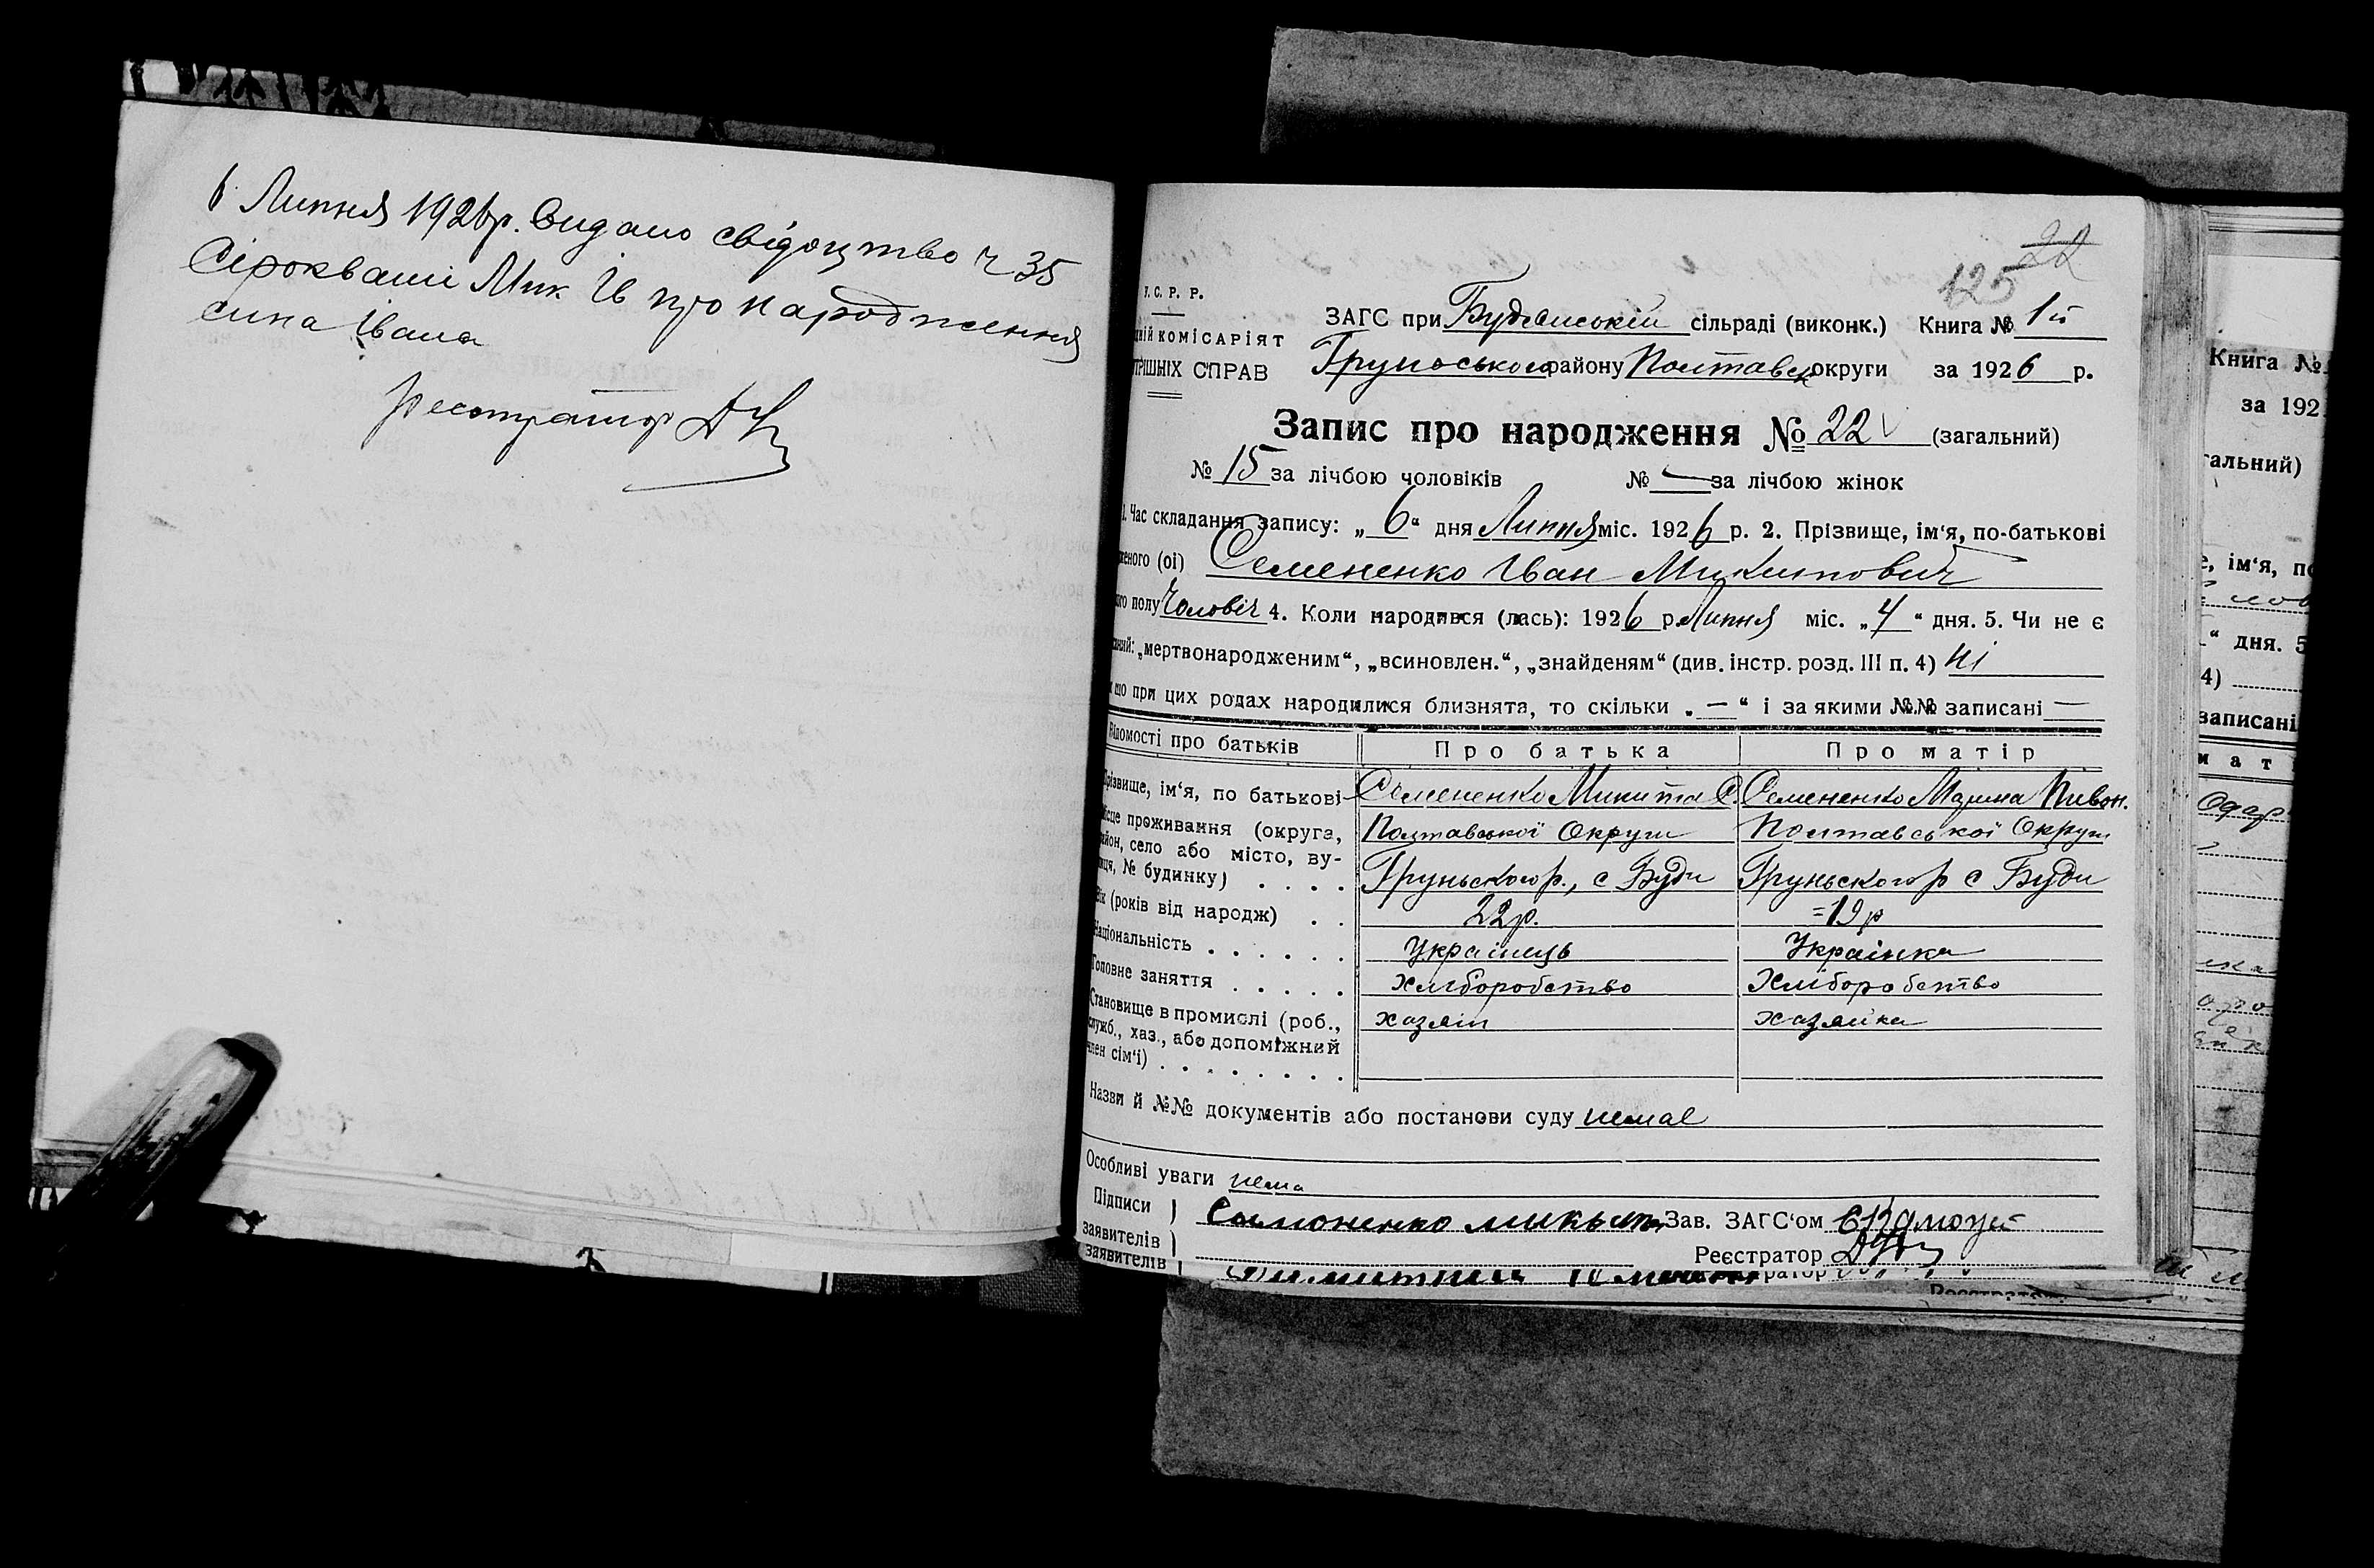 6 Липня 1926р. Видано свідоцтво ч 35
Сірокваші Мик Ів про народження
сина Івана
Реєстратор
22
125
У. С. Р. Р.
КОМІСАРІЯТ
СПРАВ
ЗАГС при Будянській сільраді (виконк.) Книга № 1й
Груньського району Полтавськ округи за 1926 р.
Запис про народження № 22 (загальний)
№ 15 за лічбою чоловіків № — за лічбою жінок
1. Час складання запису: „6“ дня Липня міс. 1926 р. 2. Прізвище, ім‘я, по-батькові
(ої) Семененко Іван Микитович
полу Чоловіч 4. Коли народився (лась): 1926 р Липня міс. „4“ дня. 5. Чи не є
„мертвонародженим“, „всиновлен.“, „знайденям“ (див. інстр. розд. III п. 4) Ні
що при цих родах народилися близнята, то скільки „—“ і за якими №№ записані —
Відомості про батьків Про батька Про матір
Прізвище, ім‘я, по батькові Семененко Микита С. Семененко Марина Пивон.
Місце проживання (округа, район, село або місто, вулиця, № будинку) . . . . Полтавської Округи Полтавської Округи
Груньского р., с Буди Груньского р с Буди
Вік (років від народж) . . 22р. =19р
Національність . . . . . . Українець Українка
Головне заняття . . . . . Хліборобство Хліборобство
Становище в промислі (роб., служб., хаз., або допоміжний член сім‘ї) . . . . . . . . хазяін хазяйка
Назви й №№ документів або постанови суду немає
Особливі уваги нема
Підписи заявителів Самоненко Зав. ЗАГС‘ом
Реєстратор
заявителів
Книга №
за 192
гальний)
ім‘я, по
“ дня. 5
4)
записані
мат
Одар
Реєстратор